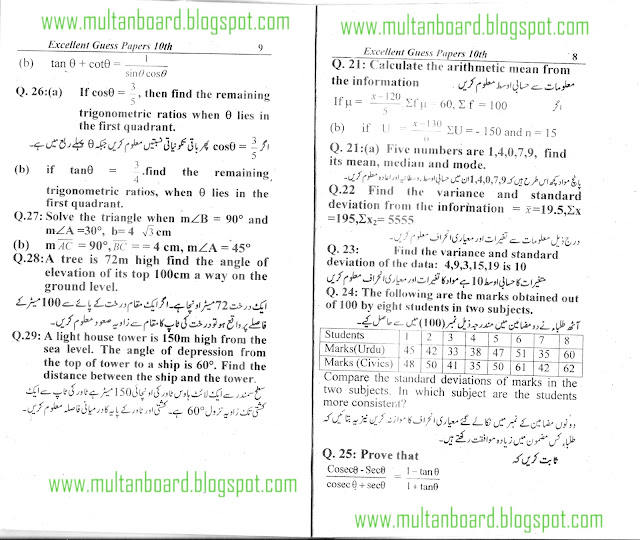 www.multanboard.blogspot.com
Excellent Guess Papers 10th 9
(b) tan θ + cotθ = 1 / sinθ cosθ
Q. 26:(a) If cosθ = 3/5, then find the remaining
trigonometric ratios when θ lies in
the first quadrant.
اگر cosθ = 3/5 پھر باقی تکونیاتی نسبتیں معلوم کریں جبکہ θ پہلے ربع میں ہے۔
(b) if tanθ = 3/4 .find the remaining
trigonometric ratios, when θ lies in the
first quadrant.
Q.27: Solve the triangle when m∠B = 90° and
m∠A =30°, b= 4 √3 cm
(b) m AC = 90°, BC = = 4 cm, m∠A = 45°
Q.28:A tree is 72m high find the angle of
elevation of its top 100cm a way on the
ground level.
ایک درخت 72 میٹر اونچا ہے۔ اگر ایک مقام درخت کے پائے سے 100 میٹر کے
فاصلے پر واقع ہو تو درخت کی ٹاپ کا مقام سے زاویہ صعود معلوم کریں۔
Q.29: A light house tower is 150m high from the
sea level. The angle of depression from
the top of tower to a ship is 60°. Find the
distance between the ship and the tower.
سطح سمندر سے ایک لائٹ ہاوس ٹاور کی اونچائی 150 میٹر ہے ٹاور کی ٹاپ سے ایک
کشتی تک زاویہ نزول 60° ہے۔ کشتی اور ٹاور کے پایہ کا درمیانی فاصلہ معلوم کریں۔
www.multanboard.blogspot.com
www.multanboard.blogspot.com
Excellent Guess Papers 10th 8
Q. 21: Calculate the arithmetic mean from
the information معلومات سے حسابی اوسط معلوم کریں
If μ = x-120 / 5, Σf μ = 60, Σ f = 100 اگر
(b) if U = x-130 / ΣU = - 150 and n = 15
Q. 21:(a) Five numbers are 1,4,0,7,9, find
its mean, median and mode.
پانچ مواد کچھ اس طرح ہیں کہ 1,4,0,7,9 ان میں حسابی اوسط، وسطانیہ اور اعادہ معلوم کریں۔
Q.22 Find the variance and standard
deviation from the information = x̄ =19.5,Σx
=195,Σx₂= 5555
درج ذیل معلومات سے تغیرات اور معیاری انحراف معلوم کریں۔
Q. 23: Find the variance and standard
deviation of the data: 4,9,3,15,19 is 10
متغیرات کا حسابی اوسط 10 ہے مواد کا تغیرات اور معیاری انحراف معلوم کریں
Q. 24: The following are the marks obtained out
of 100 by eight students in two subjects.
آٹھ طلباء نے دو مضامین میں مندرجہ ذیل نمبر (100) میں سے حاصل کیے۔
Students 1 2 3 4 5 6 7 8
Marks(Urdu) 45 42 33 38 47 51 35 60
Marks (Civics) 48 50 41 35 50 61 42 62
Compare the standard deviations of marks in the
two subjects. In which subject are the students
more consistent?
دونوں مضامین کے نمبر میں نکالے گئے معیاری انحراف کا موازنہ کریں نیز یہ بتائیں کہ
طلباء کس مضمون میں زیادہ موافقت رکھتے ہیں۔
Q. 25: Prove that ثابت کریں کہ
Cosecθ - Secθ / cosec θ + secθ = 1 - tanθ / 1 + tanθ
www.multanboard.blogspot.com